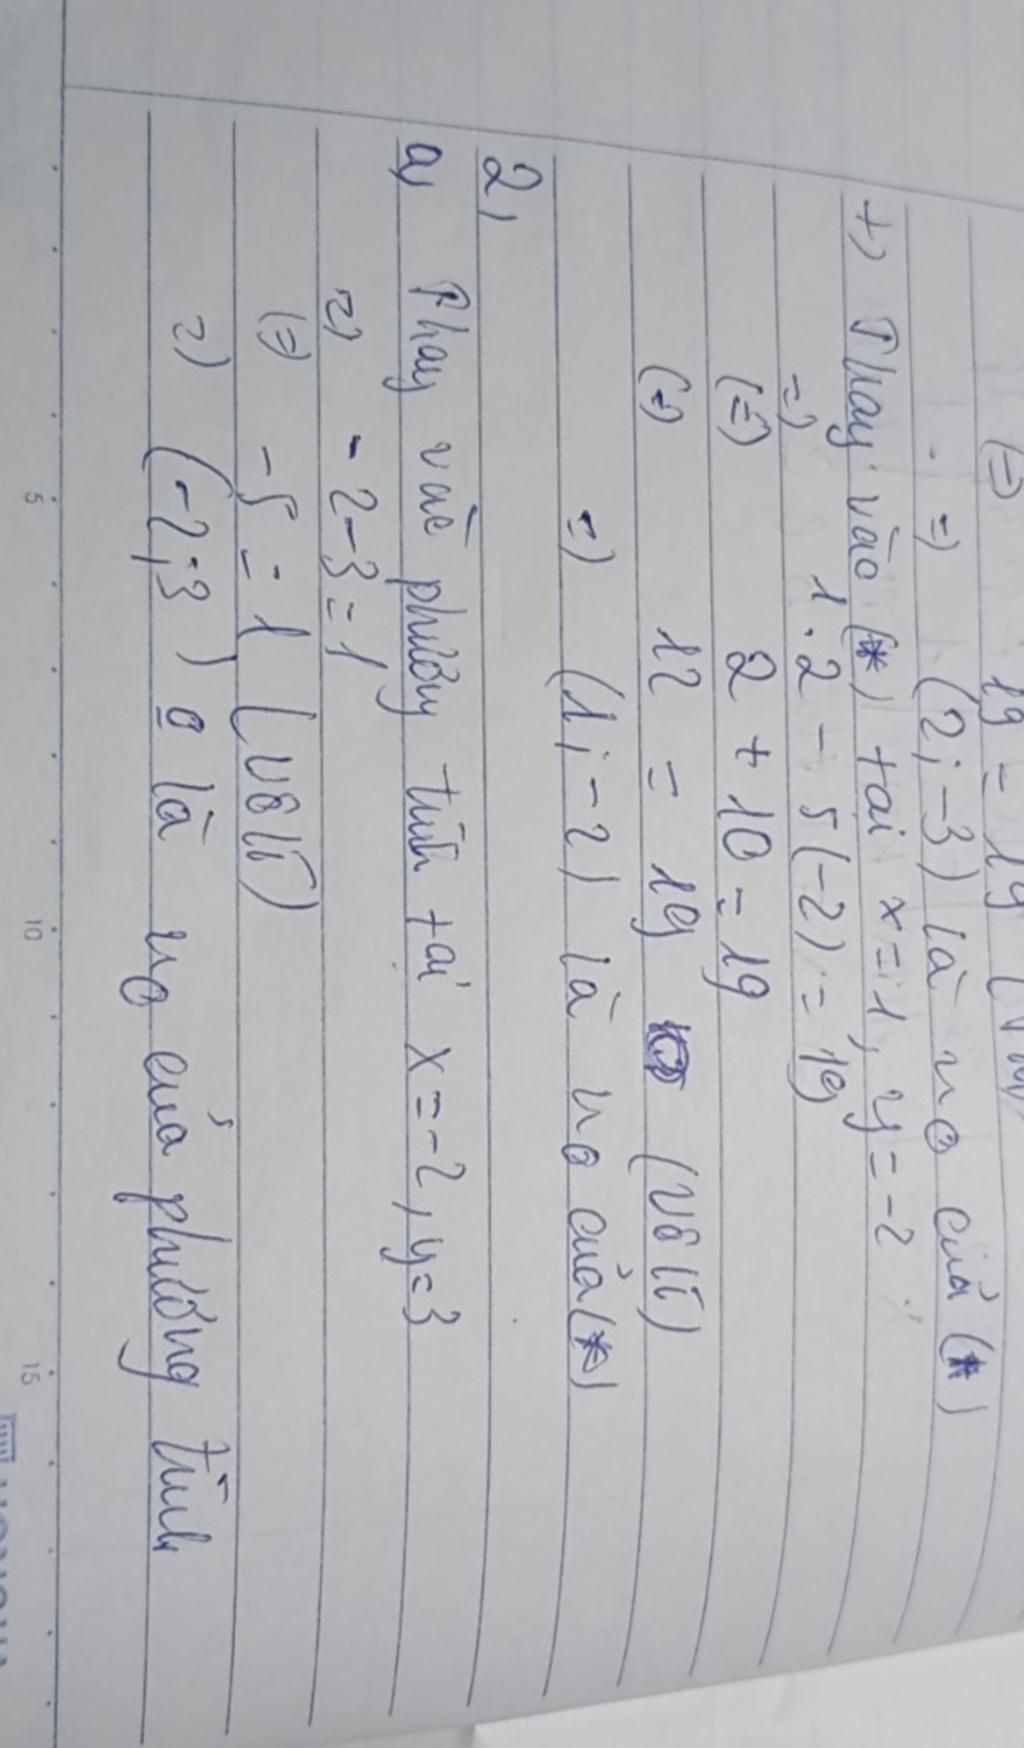 (=) 19 = 19 (
=) (2; -3) là no của (*)
+) Thay vào (*) tại x = 1, y = -2
=) 1.2 - 5(-2) = 19
(=) 2 + 10 = 19
(=) 12 = 19 (vô lí)
=) (1; -2) là no của (*)
2,
a, Thay vào phương trình tại x = -2, y = 3
=) -2-3 = 1
(=) -5 = 1 (vô lí)
=) (-2; 3) o là no của phương trình
5 10 15